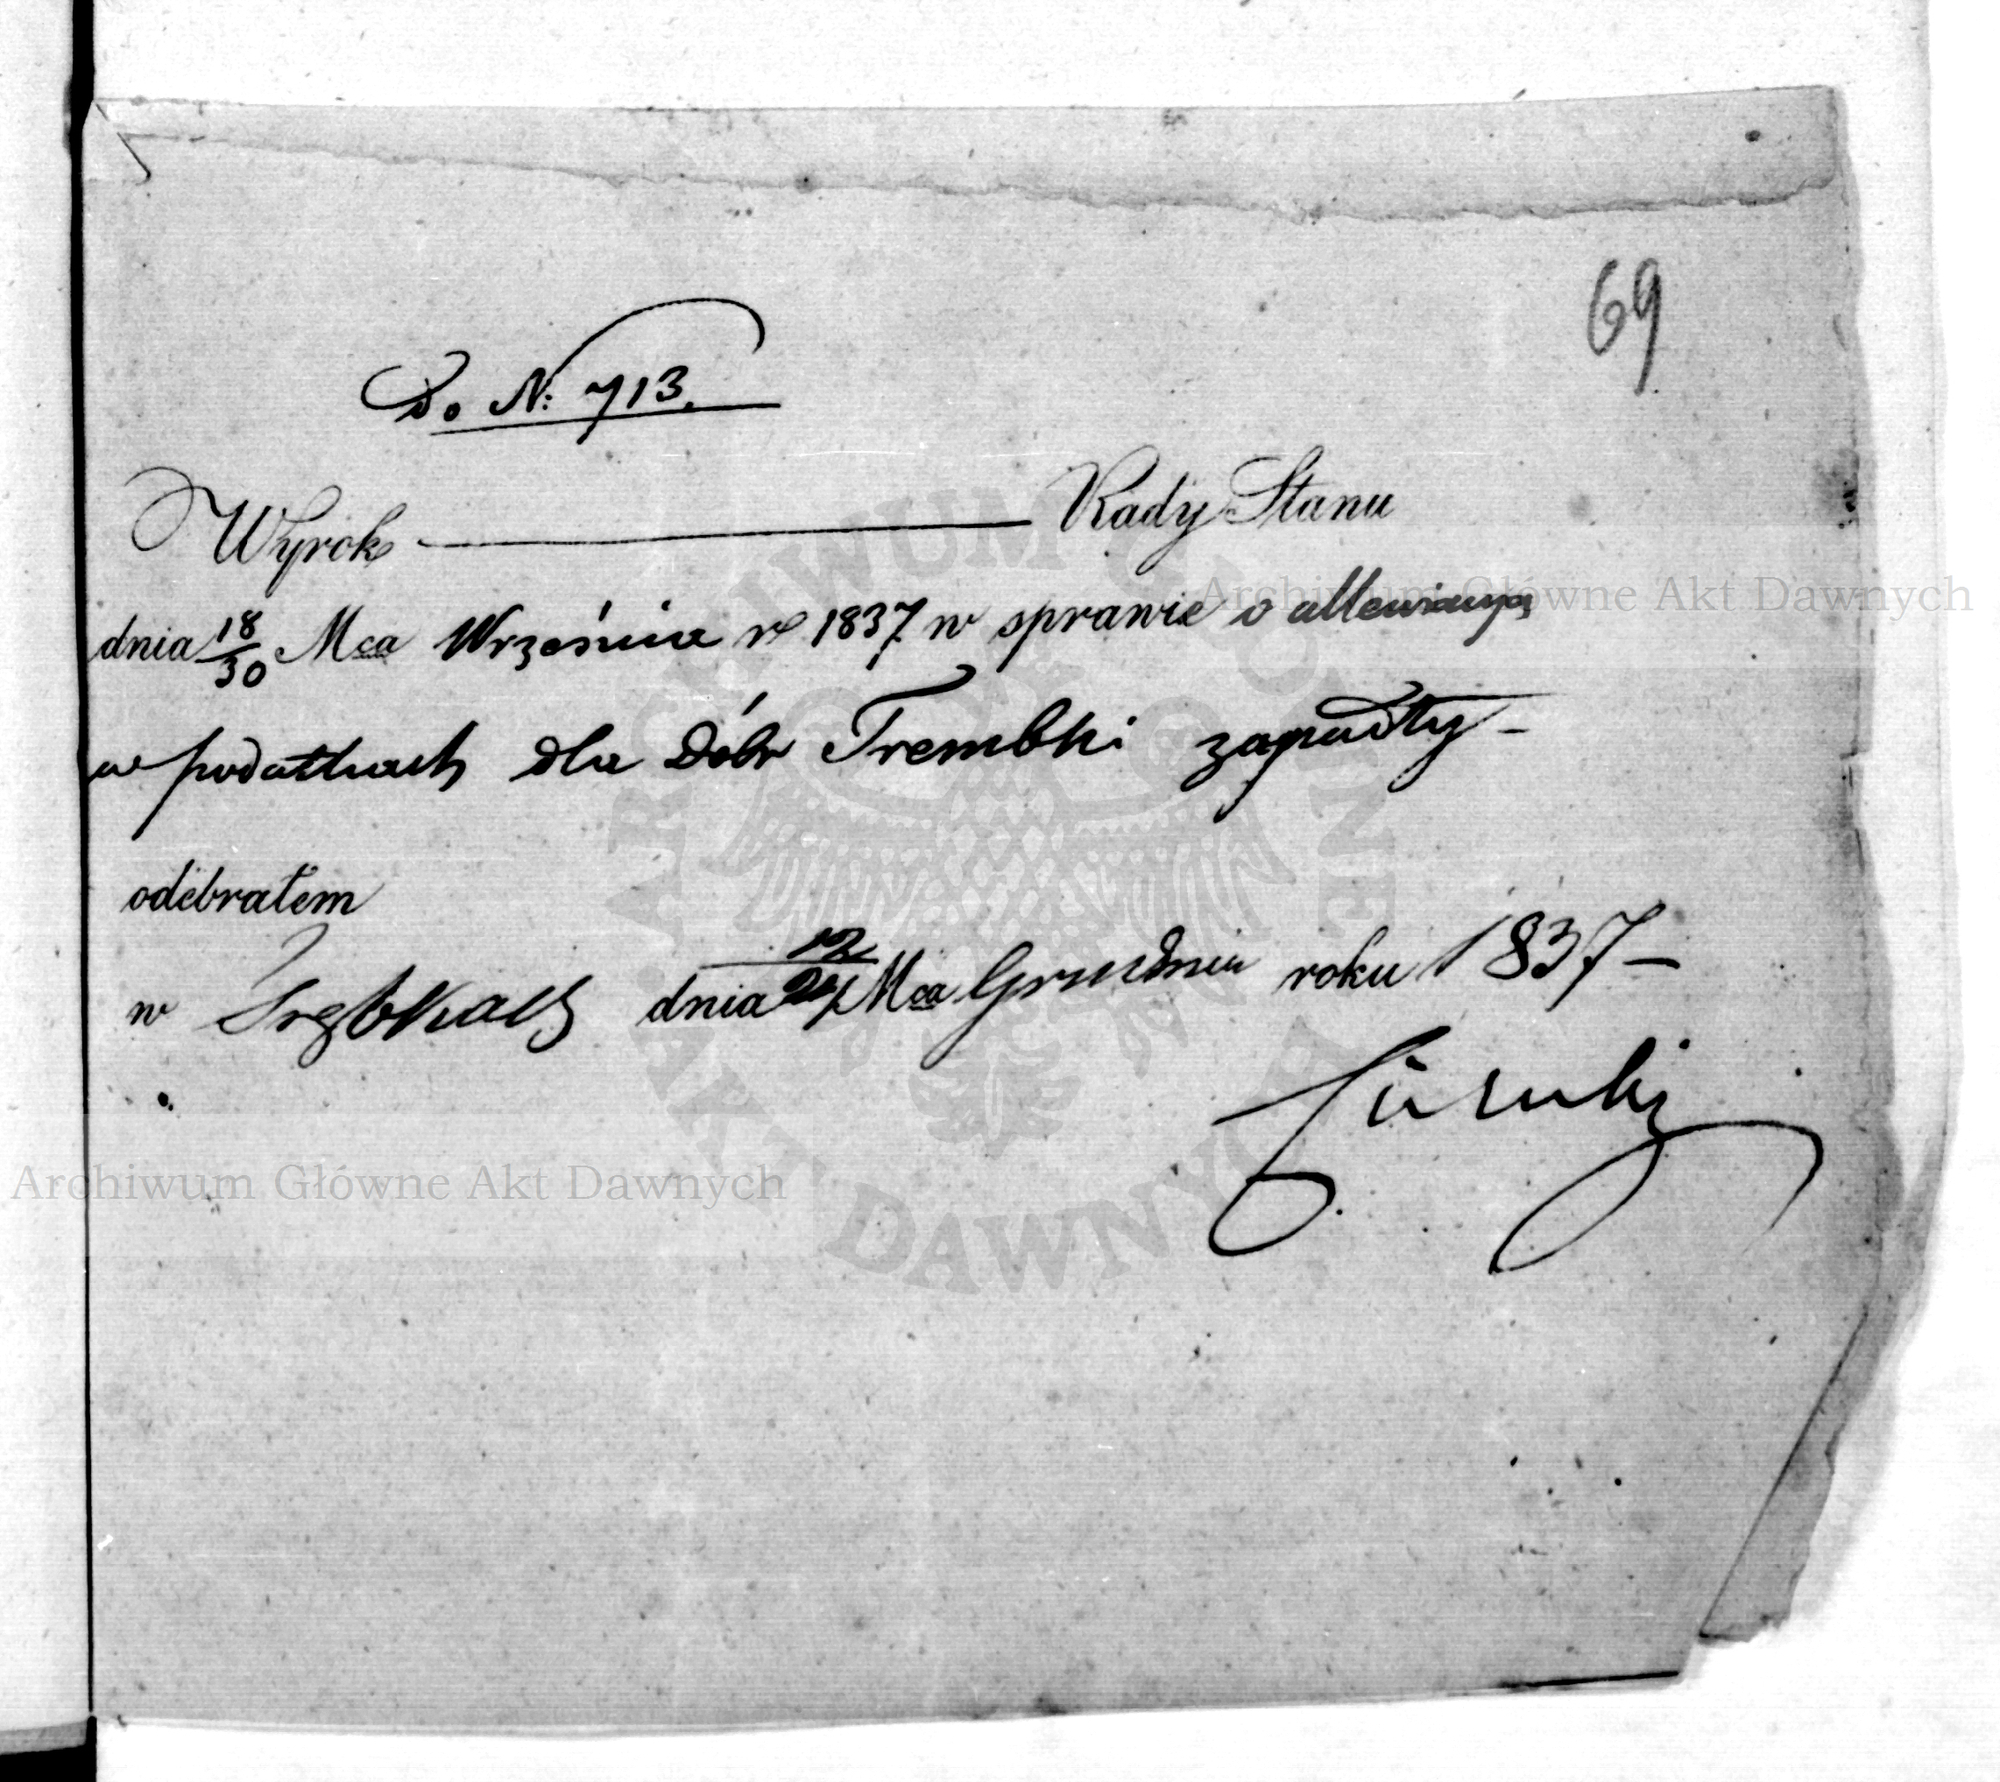 69
Do N: 713.
Wyrok Rady Stanu
dnia 18/30 Mca Września r 1837 w sprawie o allewiacyą
w podatkach dla Dóbr Trembki zapadły -
odebrałem
w Trębkach dnia 12/24 Mca Grudnia roku 1837 -
Archiwum Główne Akt Dawnych
Archiwum Główne Akt Dawnych
ARCHIWUM GŁÓWNE AKT DAWNYCH